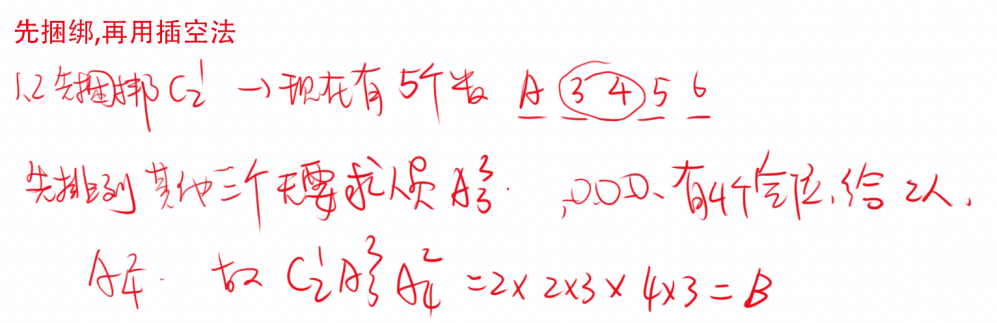 先捆绑,再用插空法
1.2先捆绑 C₂¹ → 现在有5个数 A ③④ 5 6
先排列其他三个无要求人员 A₃³. ,0.0.0、有4个空位,给2人,
A₄². 故 C₂¹A₃³A₄² =2×2×3×4×3=B